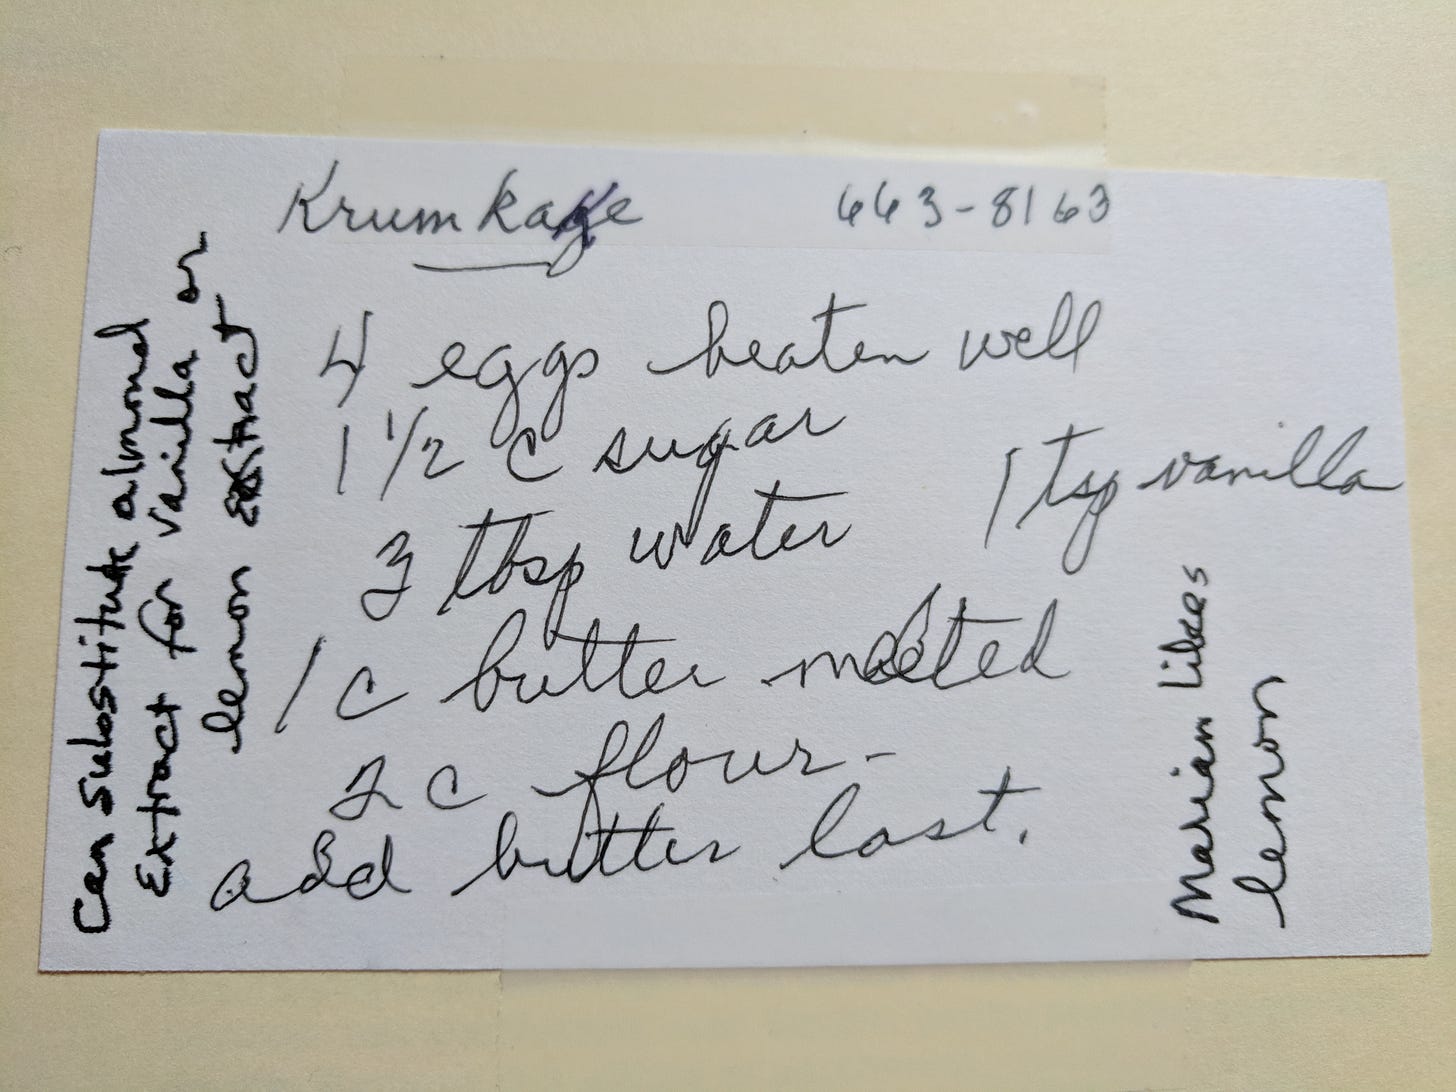 Krumkake 663-8163
4 eggs beaten well
1 1/2 c sugar
3 tbsp water 1 tsp vanilla
1 c butter melted
2 c flour -
add butter last.
Can substitute almond
Extract for vanilla or
lemon extract
Marian likes
lemon